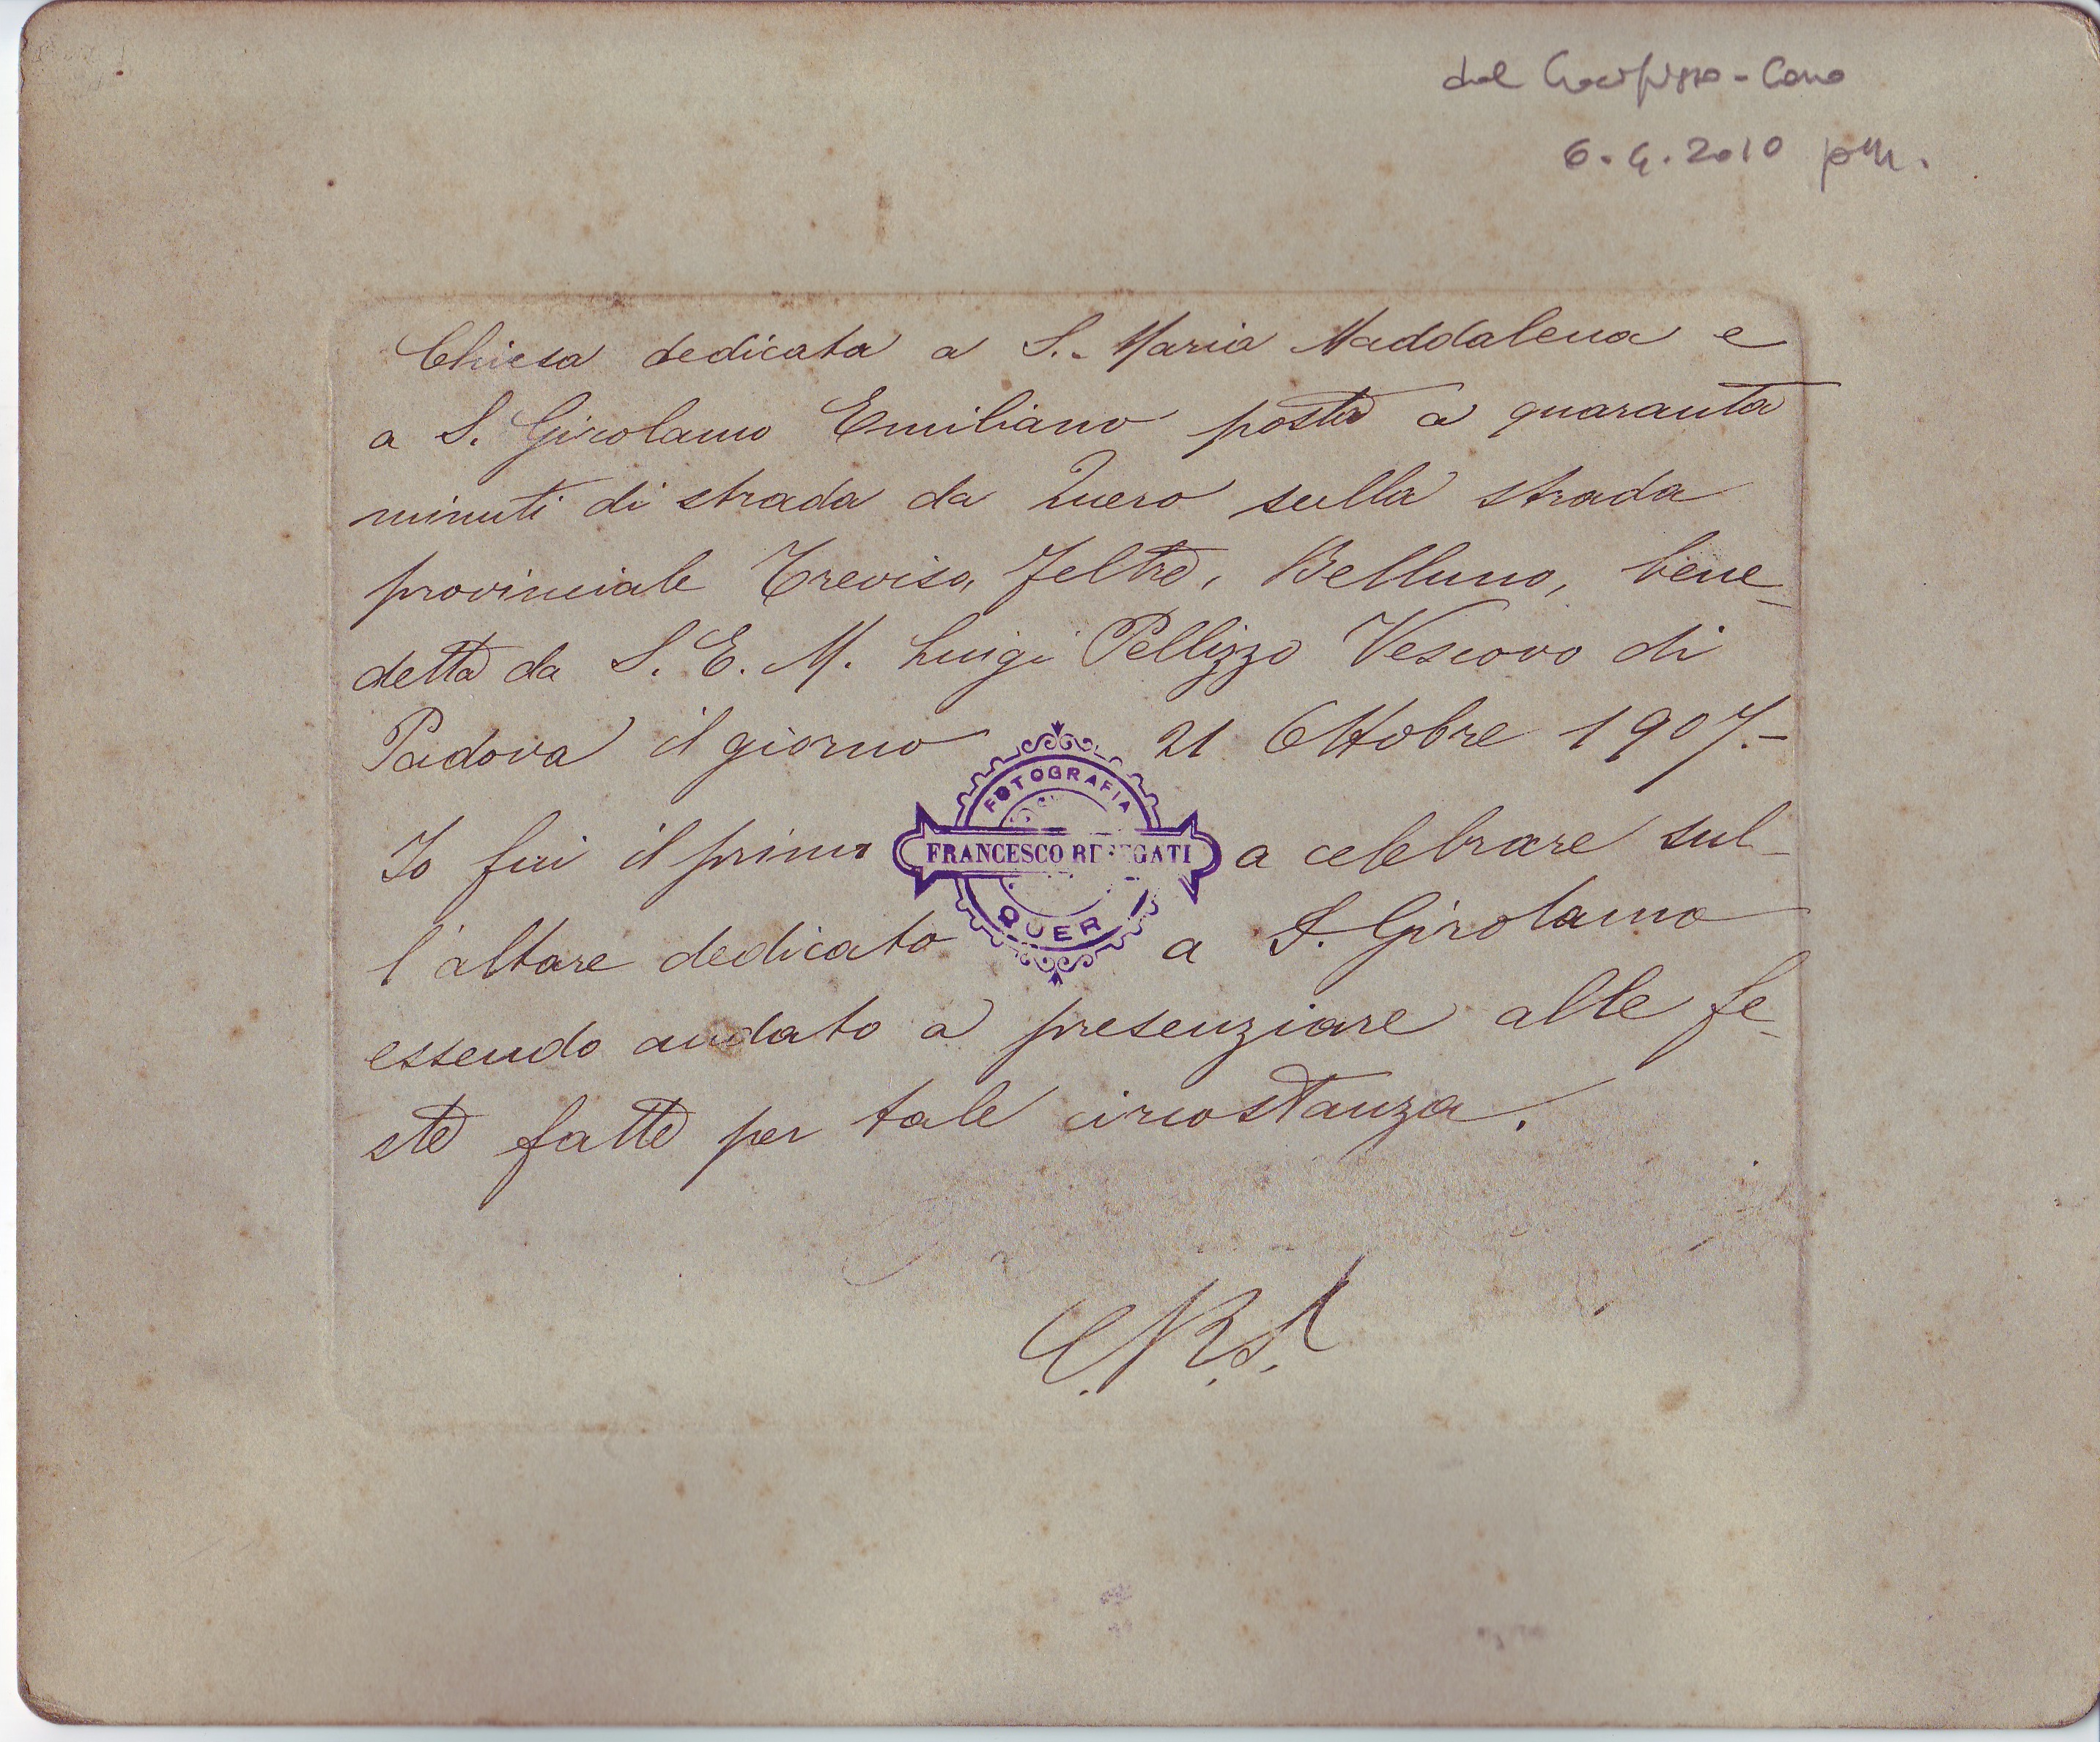 dal Crocifisso - Como
6.4.2010 pm.
Chiesa dedicata a S. Maria Maddalena e
a S. Girolamo Emiliano posta a quaranta
minuti di strada da Quero sulla strada
provinciale Treviso, Feltre, Belluno, bene-
detta da S. E. M. Luigi Pellizzo Vescovo di
Padova il giorno 21 Ottobre 1907.-
FOTOGRAFIA
FRANCESCO
QUER
Io fui il primo a celebrare sul-
l'altare dedicato a S. Girolamo
essendo andato a presenziare alle fe-
ste fatte per tale circostanza.